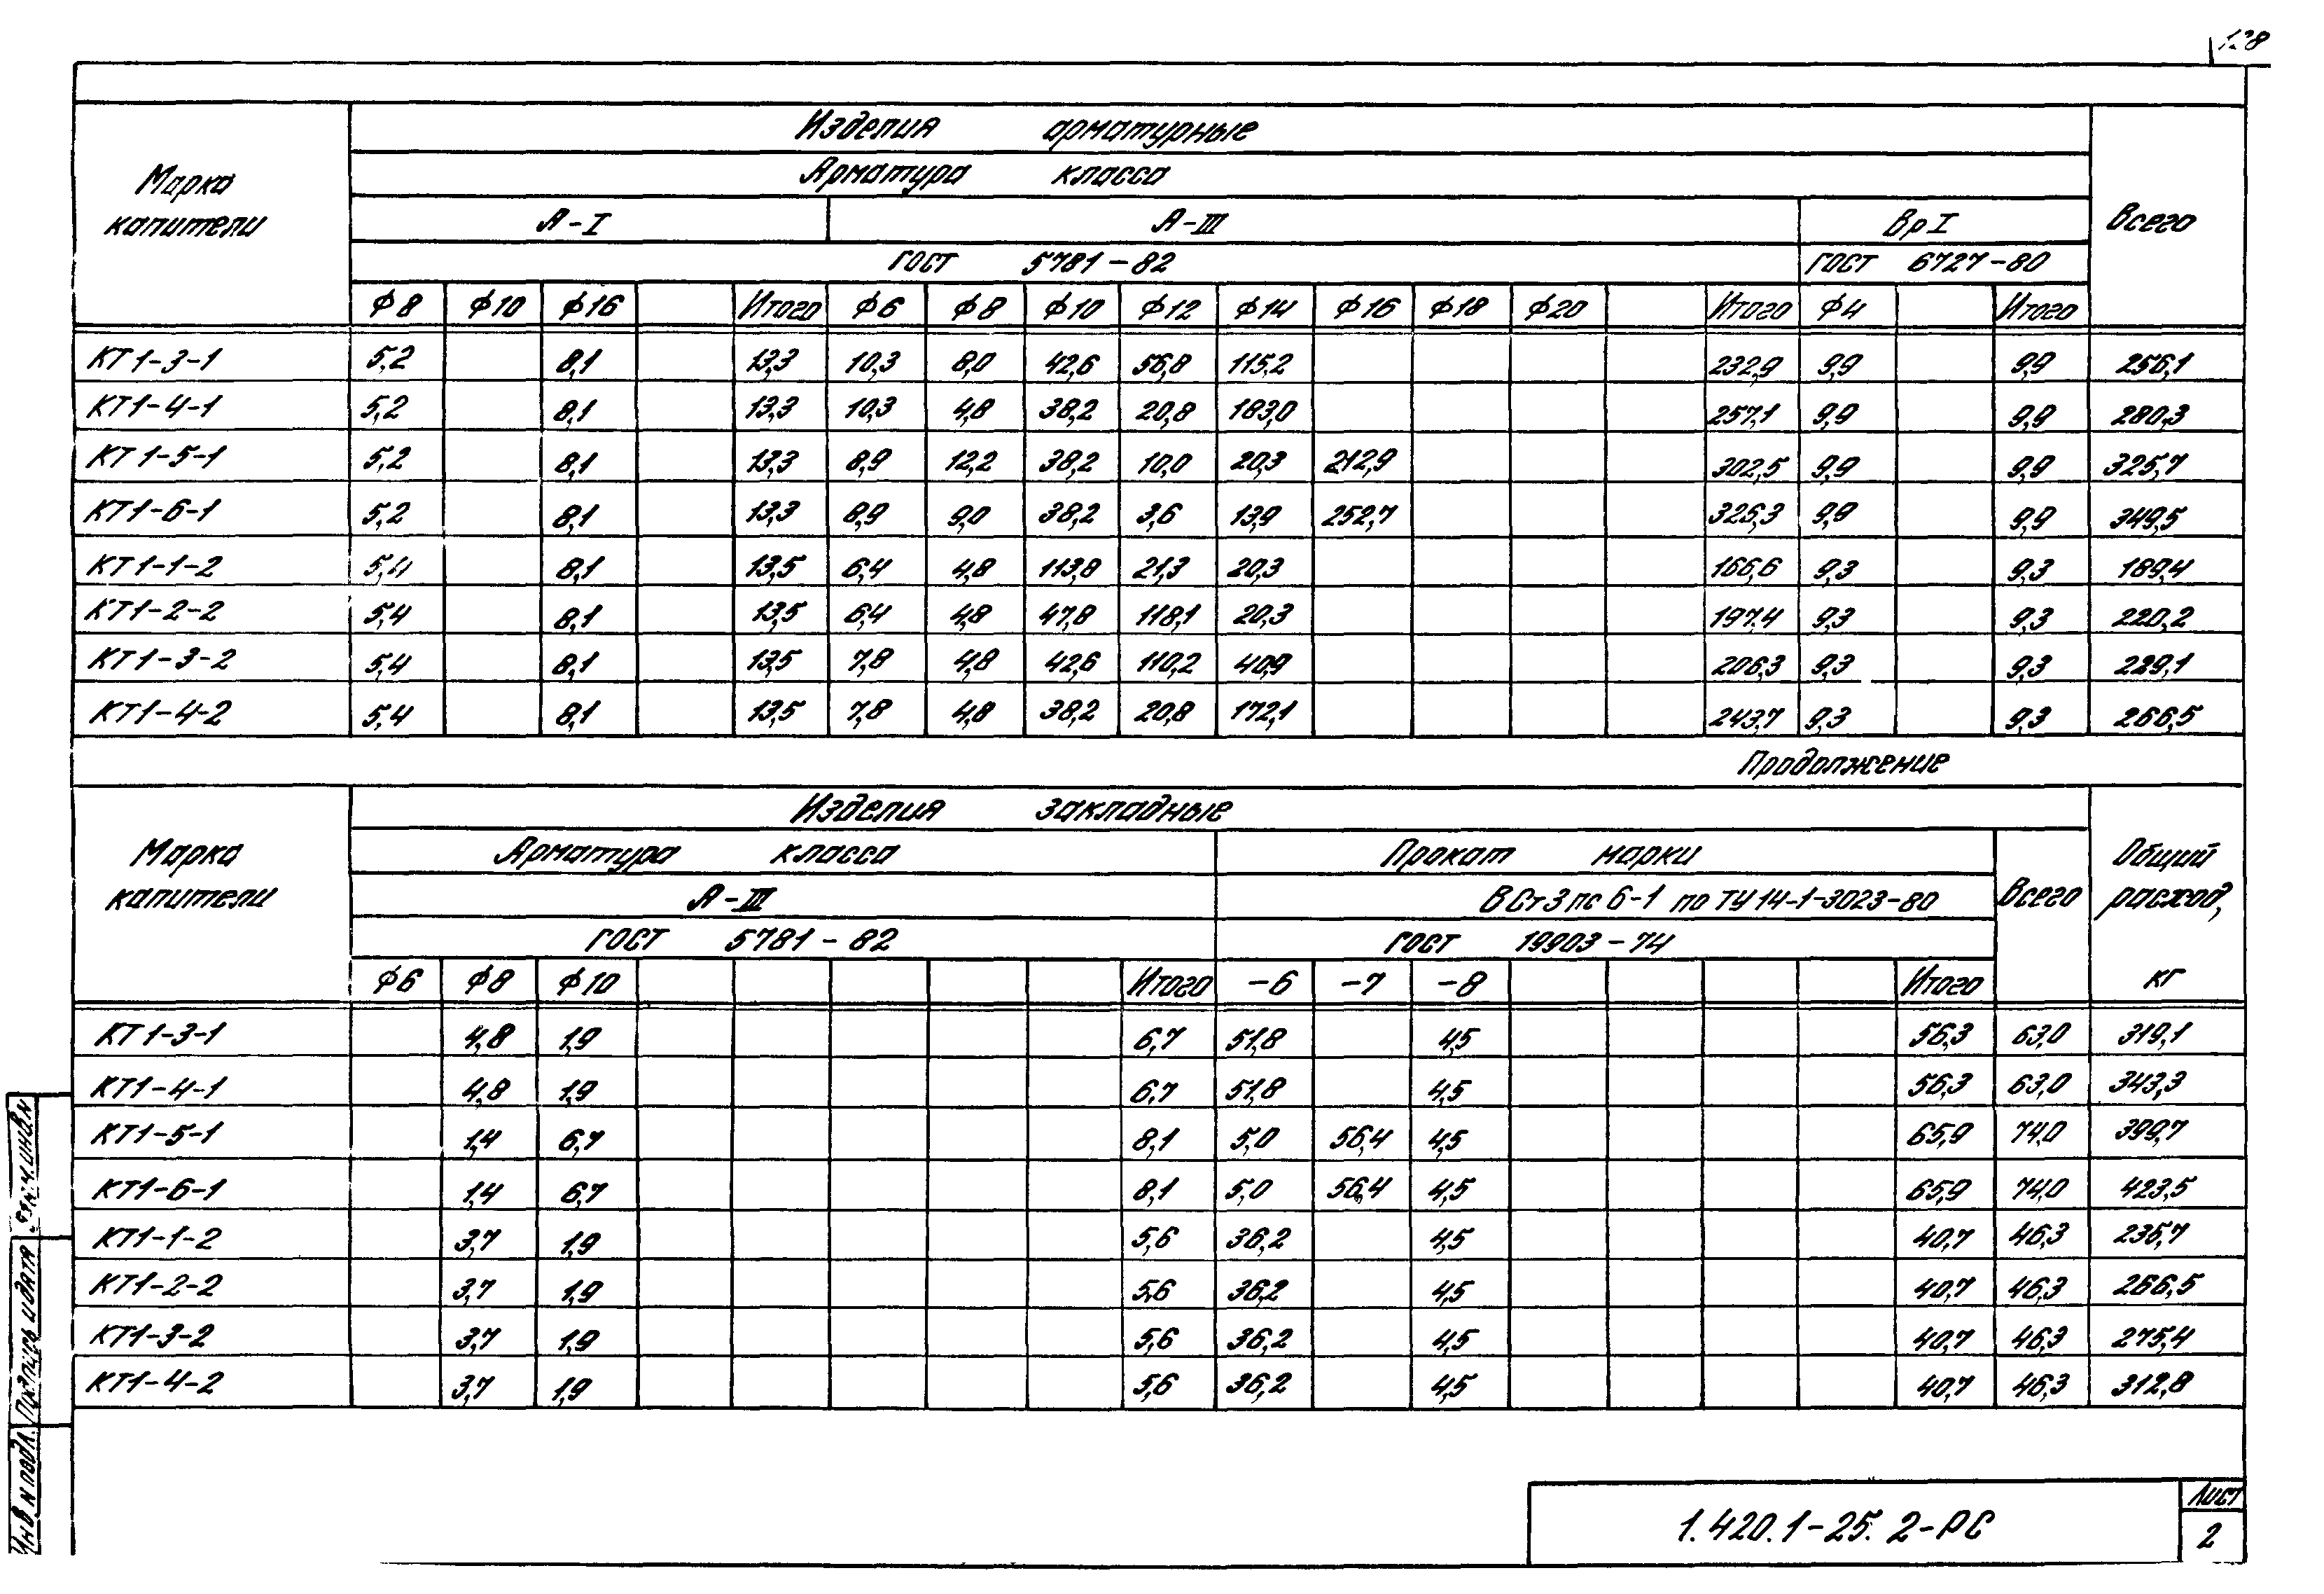 128
Изделия арматурные
Арматура класса
Марка капители
А-I А-III Вр I Всего
ГОСТ 5781-82 ГОСТ 6727-80
ф8 ф10 ф16 Итого ф6 ф8 ф10 ф12 ф14 ф16 ф18 ф20 Итого ф4 Итого
КТ1-3-1 5,2 8,1 13,3 10,3 8,0 42,6 56,8 115,2 232,9 9,9 9,9 256,1
КТ1-4-1 5,2 8,1 13,3 10,3 4,8 38,2 20,8 183,0 257,1 9,9 9,9 280,3
КТ1-5-1 5,2 8,1 13,3 8,9 12,2 38,2 10,0 20,3 212,9 302,5 9,9 9,9 325,7
КТ1-6-1 5,2 8,1 13,3 8,9 9,0 38,2 3,6 13,9 252,7 326,3 9,9 9,9 349,5
КТ1-1-2 5,4 8,1 13,5 6,4 4,8 113,8 21,3 20,3 166,6 9,3 9,3 189,4
КТ1-2-2 5,4 8,1 13,5 6,4 4,8 47,8 118,1 20,3 197,4 9,3 9,3 220,2
КТ1-3-2 5,4 8,1 13,5 7,8 4,8 42,6 110,2 40,9 206,3 9,3 9,3 229,1
КТ1-4-2 5,4 8,1 13,5 7,8 4,8 38,2 20,8 172,1 243,7 9,3 9,3 266,5
Продолжение
Изделия закладные
Марка капители
Арматура класса Прокат марки Общий
А-III ВСт3пс6-1 по ТУ14-1-3023-80 Всего расход,
ГОСТ 5781-82 ГОСТ 19903-74
ф6 ф8 ф10 Итого -6 -7 -8 Итого кг
КТ1-3-1 4,8 1,9 6,7 51,8 4,5 56,3 63,0 319,1
КТ1-4-1 4,8 1,9 6,7 51,8 4,5 56,3 63,0 343,3
КТ1-5-1 1,4 6,7 8,1 5,0 56,4 4,5 65,9 74,0 399,7
КТ1-6-1 1,4 6,7 8,1 5,0 56,4 4,5 65,9 74,0 423,5
КТ1-1-2 3,7 1,9 5,6 36,2 4,5 40,7 46,3 235,7
КТ1-2-2 3,7 1,9 5,6 36,2 4,5 40,7 46,3 266,5
КТ1-3-2 3,7 1,9 5,6 36,2 4,5 40,7 46,3 275,4
КТ1-4-2 3,7 1,9 5,6 36,2 4,5 40,7 46,3 312,8
Инв N подл. Подпись и дата
1.420.1-25. 2-РС
Лист
2